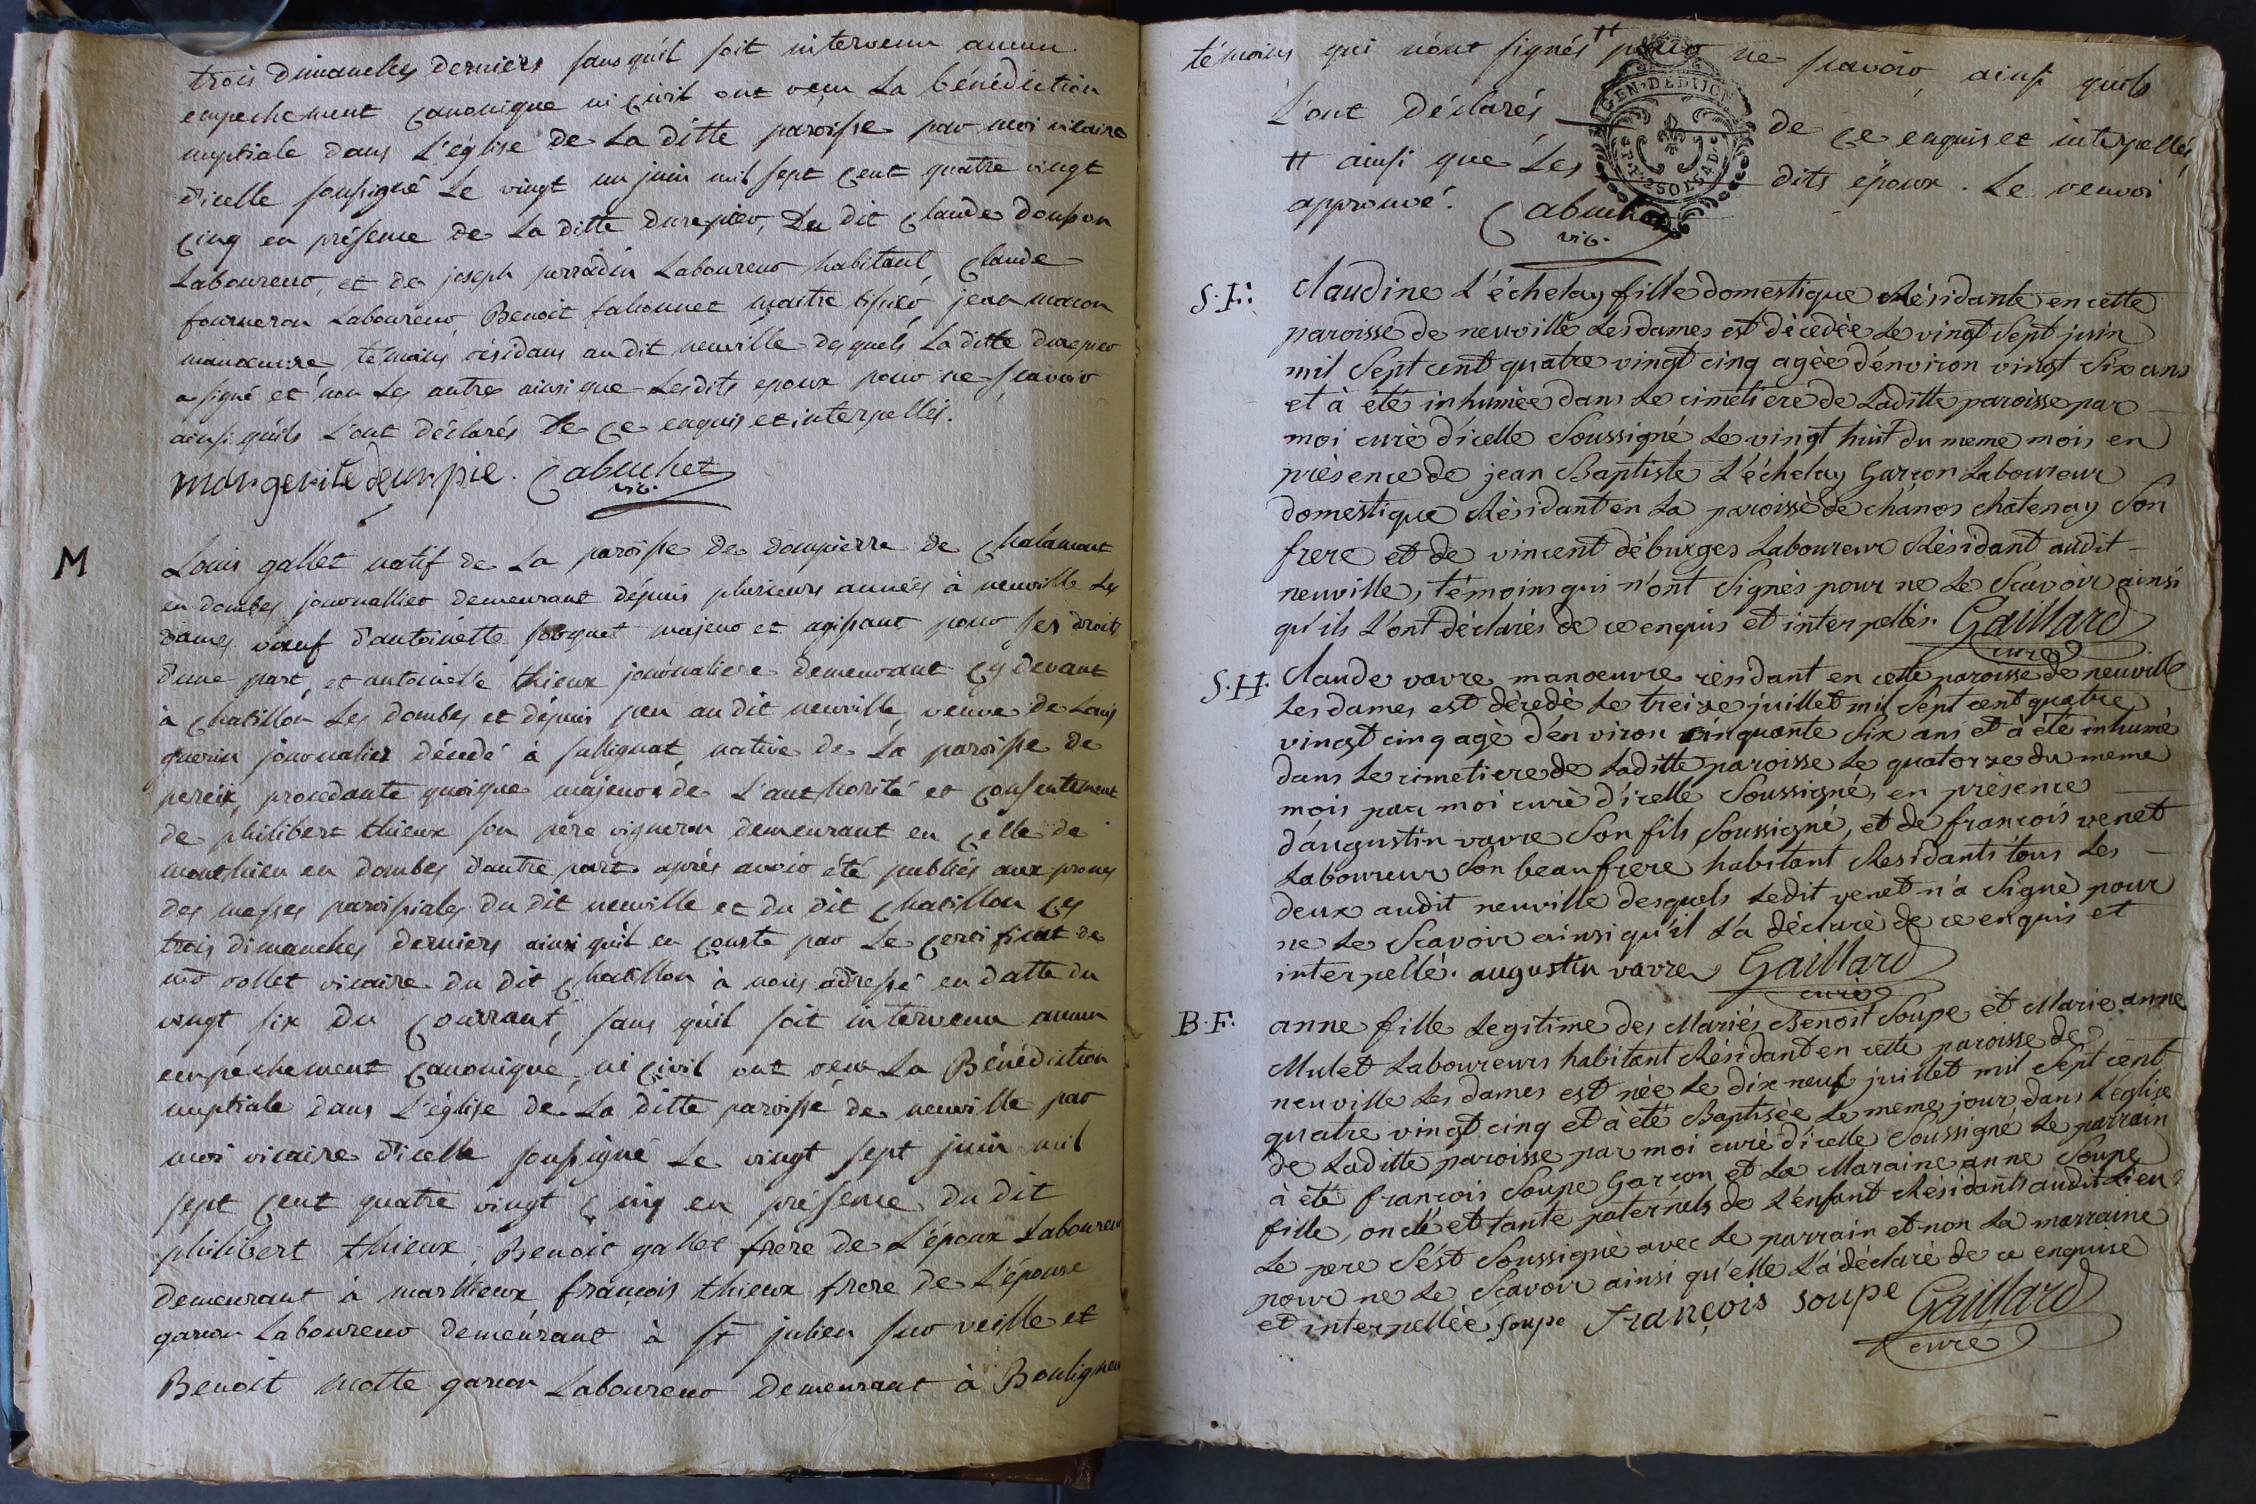 trois dimanches derniers sans quil soit intervenu aucun
empechement canonique ni civil ont reçu La bénédiction
nuptiale dans L'église de La ditte paroisse par moi vicaire
d'icelle soussigné Le vingt un juin mil sept cent quatre vingt
cinq en présence de La ditte durepier, Du dit Claude
Laboureur, et de joseph perradin Laboureur habitant, Claude
fourneron Laboureur, Benoit maitre jean macon
manoeuvre témoins résidans au dit neuville desquels La ditte durepier
a signé et non Les autres ainsi que Lesdits epoux pour ne sçavoir
ainsi quils L'ont déclarés De ce enquis et interpellés.
Cabuchet
vic.
M
Louis gallet natif de La paroisse de dompierre de Chalamont
en dombes journallier demeurant dépuis plusieurs années à neuville Les
dames, vœuf d'antoinette majeur et agissant pour ses droits
d'une part, et antoinette thieux journaliere demeurant Cy devant
à Chatillon Les dombes et dépuis peu au dit neuville, veuve de Louis
guerin journalier décédé à sullignat, native de La paroisse de
pereix, procedante quoique majeure de L'authorité et Consentement
de philibert thieux son pere vigneron demeurant en Celle de
monthieu en dombes d'autre part après avoir été publiés aux prones
des messes paroissiales du dit neuville et du dit Chatillon Ces
trois dimanches derniers ainsi qu'il en Conste par Le Certificat de
mr rollet vicaire du dit Chatillon à nous adressé en datte du
vingt six du Courrant, sans quil soit intervenu aucun
empêchement Canonique, ni Civil ont reçu La Bénédiction
nuptiale dans L'église de La ditte paroisse de neuville par
moi vicaire d'icelle soussigné Le vingt sept juin mil
sept Cent quatre vingt Cinq en présence du dit
philibert thieux, Benoit gallet frere de L'époux Laboureur
demeurant à marlieux françois thieux frere de L'épouse
garcon Laboureur demeurant à st julien sur veille et
Benoit Motte garcon Laboureur demeurant à Bouligneu
témoins qui n'ont signés # pour ne sçavoir, ainsi quils
L'ont déclarés de ce enquis et interpellés
# ainsi que Les dits époux. Le renvoi
approuvé. Cabuchet
vic.
GEN. DE DIJON
2 SOLS 4 D
S.F. Claudine L'échelay fille domestique Résidante en cette
paroisse de neuville Les dames est décedée Le vingt Sept juin
mil Sept cent quatre vingt cinq agée d'énviron vingt Six ans
et à été inhumée dans Le cimetiere de Laditte paroisse par
moi curé d'icelle Soussigné Le vingt huit du meme mois en
présence de jean Baptiste L'échelay Garçon Laboureur
domestique Résidant en La paroisse de chános chatenay Son
frere et de vincent déburges Laboureur Résidant audit
neuville, témoins qui n'ont Signés pour ne Le Scavoir ainsi
qu'ils L'ont déclarés de ce enquis et interpellés. Gaillard
curé
S.H. Claude vavre manoeuvre résidant en cette paroisse de neuville
Les dames est décedé Le treize juillet mil Sept cent quatre
vingt cinq agé d'énviron cinquante Six ans et à été inhumé
dans Le cimetiere de Laditte paroisse Le quatorze du meme
mois par moi curé d'icelle Soussigné, en présence
d'augustin vavre Son fils Soussigné, et de françois venet
Laboureur Son beaufrere habitant Résidants tous Les
deux audit neuville desquels Ledit venet n'a Signé pour
ne Le Scavoir ainsi qu'il L'a déclaré de ce enquis et
interpellé. augustin vavre Gaillard
curé
B.F. anne fille Legitime des Mariés Benoit Soupe et Marie anne
Mulet Laboureurs habitant Résidant en cette paroisse de
neuville Les dames est née Le dix neuf juillet mil Sept cent
quatre vingt cinq et à été Baptisée Le meme jour dans L'église
de Laditte paroisse par moi curé d'icelle Soussigné Le parrain
à été françois Soupe Garçon et La Maraine anne Soupe
fille, oncle et tante paternels de L'enfant Résidants audit Lieu
Le pere S'est Soussigné avec Le parrain et non La marraine
pour ne Le Scavoir ainsi qu'elle L'a déclaré de ce enquise
et interpellée Soupe François soupe Gaillard
curé